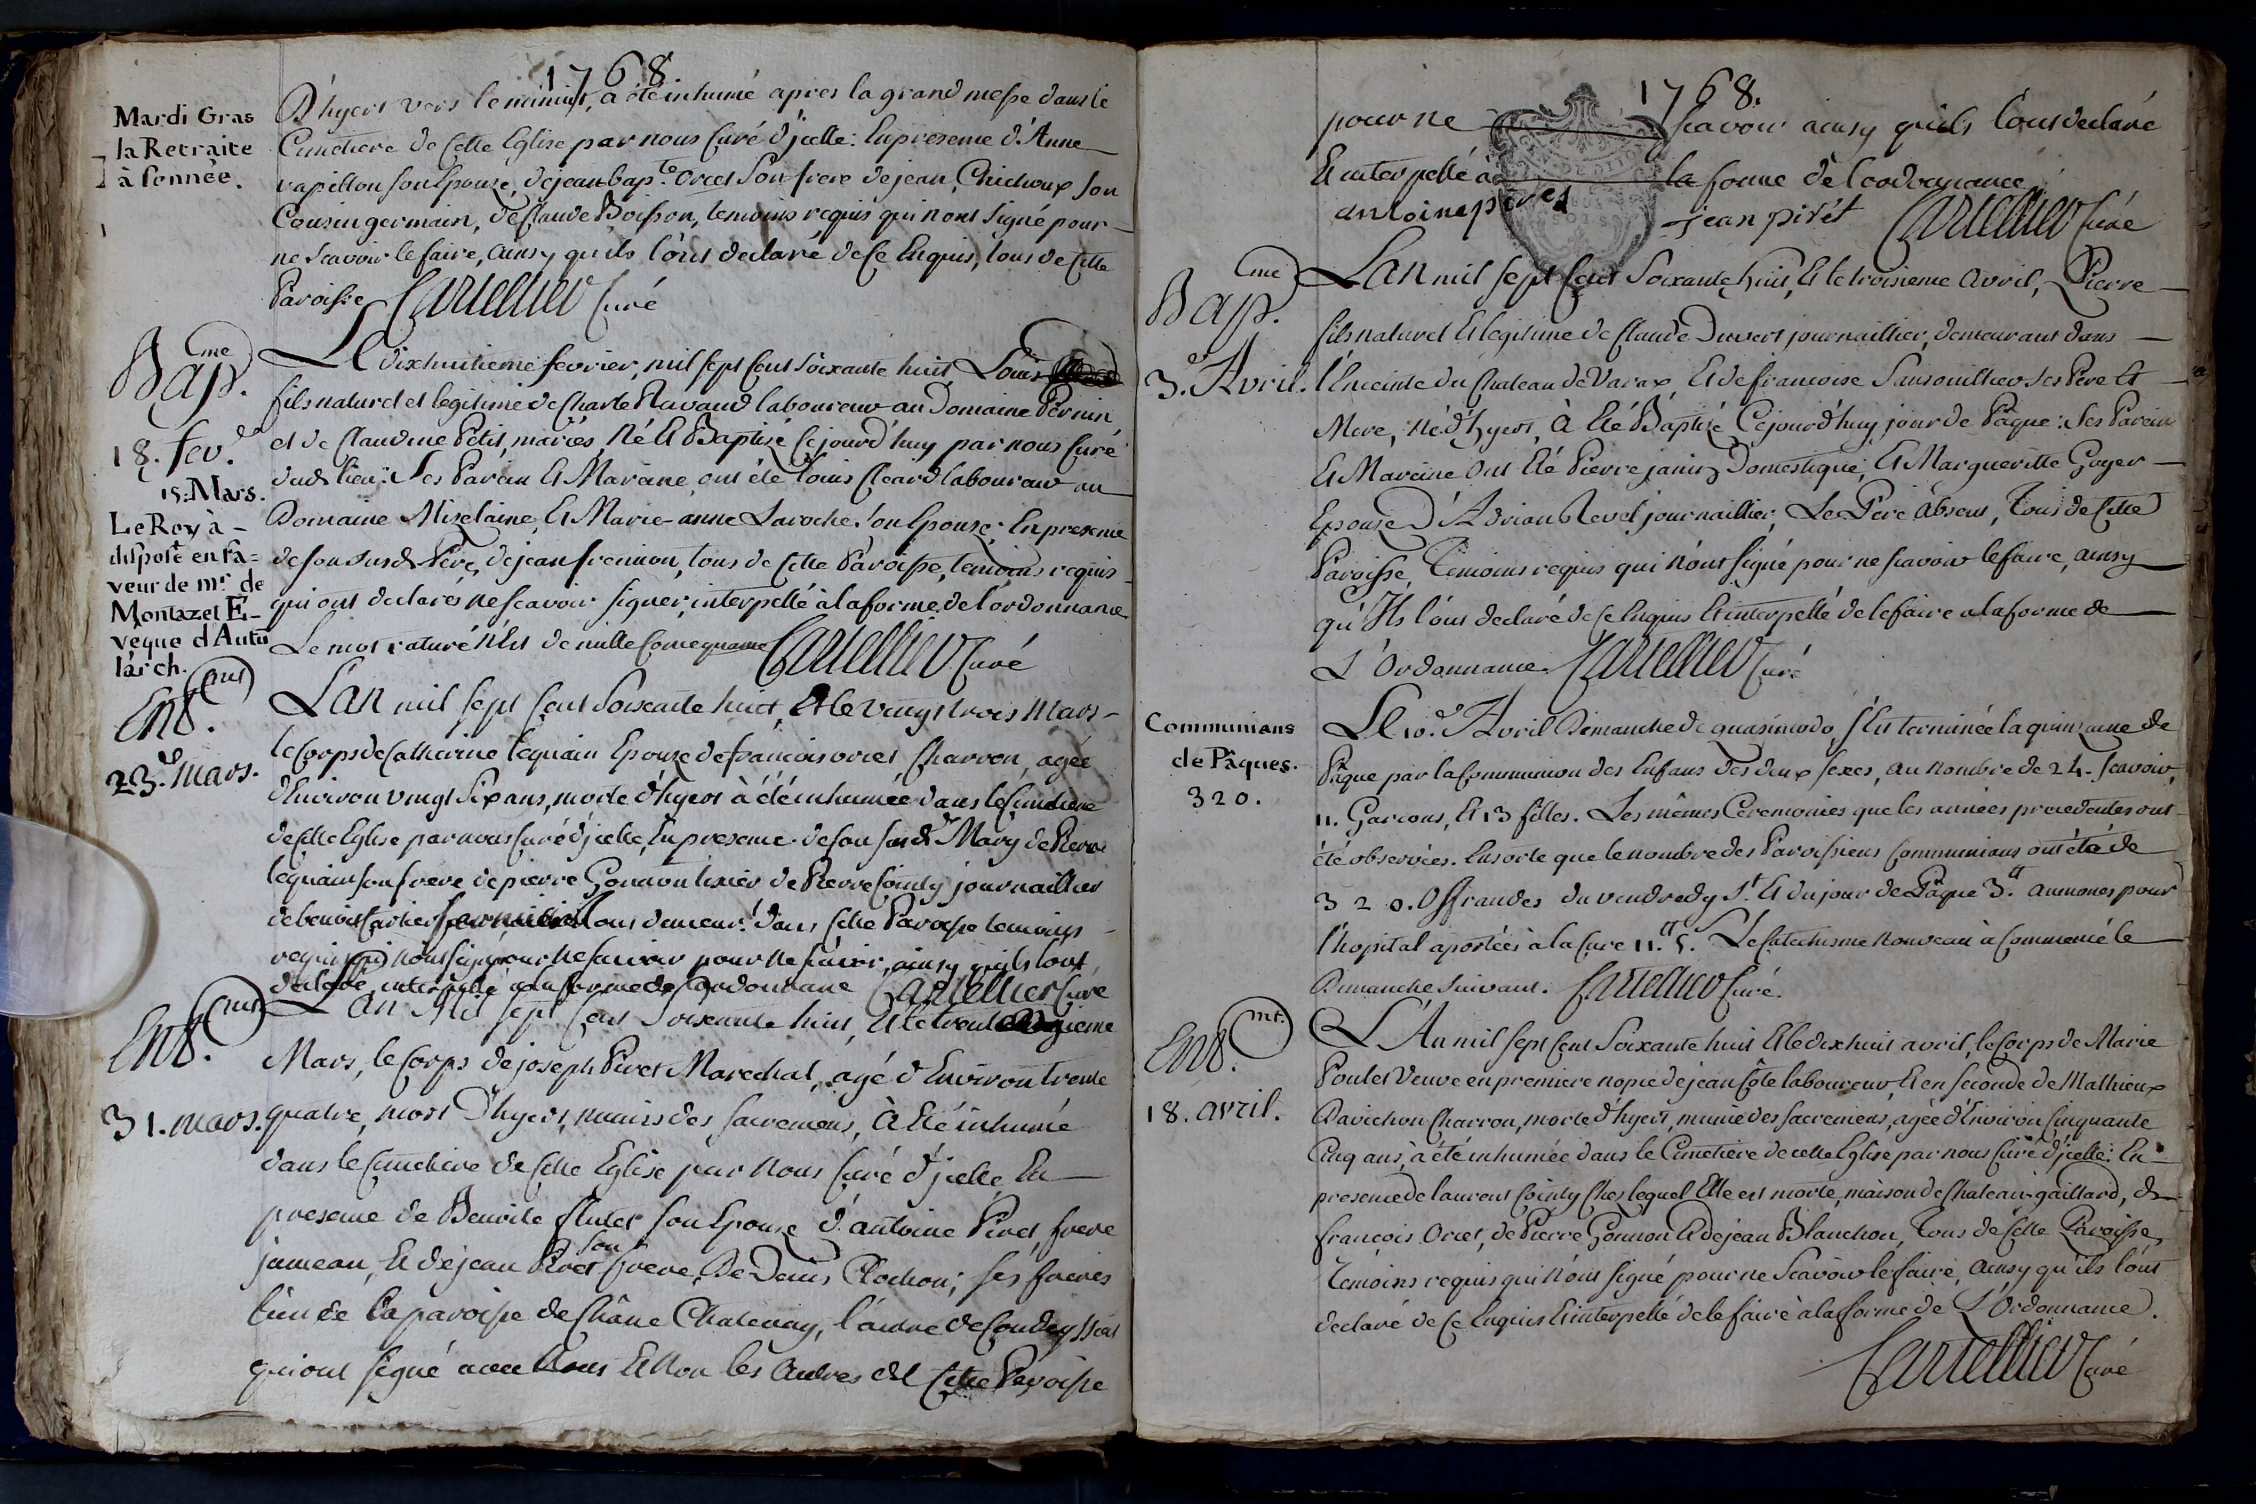 1768.
Mardi Gras
la Retraite
à sonnée.
D'hyert vers le minuit, a été inhumé apres la grand messe dans le
Cimetiere de Cette Eglise par nous Curé d'jcelle: En presence d'Anne
vapillon son Epouse, de jean bap.te Orcet Son frere de jean Chichoux son
Cousin germain, de Claude Boisson, temoins requis qui n'ont signé pour
ne scavoir le faire, ainsy qu'ils l'ont declaré de Ce Enquis, tous de Cette
Paroisse Cartellier Curé
Bap.me
18. fev.
Le dixhuitieme fevrier, mil sept Cent soixante huit Louis
fils naturel et legitime de Charle Ravaud laboureur au Domaine Pernin
et de Claudine Petit, mariés, Né Et Baptisé Cejourd'huy par nous Curé
dud. lieu: Ses Parain Et Maraine ont été louis Cleard laboureur au
Domaine Mizelaine, Et Marie-anne Laroche son Epouse; En presence
de son susd. Père, de jean fremion, tous de Cette Paroisse, temoins requis
qui ont declarés ne scavoir signer, interpellé à la forme de l'ordonnance
Le mot raturé n'Est de nulle Consequence Cartellier Curé
15. Mars.
Le Roy à
disposé en fa=
veur de mr. de
Montazet E-
vêque d'Autu
l'arch.
Ent.mt
23. mars.
L'an mil sept Cent Soixante huit, Et le vingt trois Mars
le Corps de Catherine lequain Epouse de francois orcet Charron, agée
d'Environ vingt Six ans, morte d'hyert à été inhumée dans le Cimetiere
de Cette Eglise par nous Curé d'jcelle, En presence de son susd. Mary de Pierre
lequain son frere de pierre Gonnon tixier de Pierre Cointy journaillier
de benoit Cartier tous demeur.t dans Cette Paroisse temoins
requis qui n'ont signé pour ne scavoir pour ne scavoir, ainsy qu'ils l'ont
declaré, interpellé a la forme de l'ordonnance Cartellier Curé
Ent.mt
31. mars.
L'an Mil sept Cent Soixante huit, Et le trente unzieme
Mars, le Corps de joseph Piret Marechal, agé d'Environ trente
quatre, mort D'hyert, munis des sacremens, À Eté inhumé
dans le Cimetiere de Cette Eglise par Nous Curé d'jcelle En
presence de Benoite Clutet son Epouse d'antoine Piret, frere
jumeau, Et de jean Piret son frere, De Denis Clochon; ses freres
l'un de la paroisse de Chane Chatenay, l'autre de Condeyssiat
qui ont signé avec Nous Et Non les Autres de Cette Paroisse
1768.
pour ne scavoir ainsy qu'ils l'ont declaré
Et interpellé à la forme de l'ordonnance
antoine pires jean pirét Cartellier Curé
Bap.me
3. Avril.
L'an mil sept Cent Soixante huit, Et le troisieme Avril, Pierre
fils naturel Et legitime de Claude Duvert journaillier, demeurant dans
l'Enceinte du Chateau de Varax Et de francoise Sansouillier ses Pere Et
Mere, Né d'hyert, À Eté Baptisé Cejourd'huy jour de Pâque: Ses Parain
Et Maraine ont Eté Pierre janin Domestique, Et Margueritte Goyer
Epouse D'Adrian Revel journaillier; Le Père Absent, Tous de Cette
Paroisse, Temoins requis qui n'ont signé pour ne scavoir le faire, ainsy
qu'Ils l'ont declaré de Ce Enquis Et interpellé de le faire a la forme de
L'Ordonnance. Cartellier Curé
Communians
de Pâques.
320.
Le 10. Avril Dimanche de quasimodo, s'Est terminée la quinzaine de
Pâque par la Communion des Enfans des deux sexes, au nombre de 24. scavoir,
11. Garcons, Et 13 filles. Les mêmes Ceremonies que les années precedentes ont
été observées. Ensorte que le nombre des Paroissiens Communians ont été de
320. Offrandes du vendredy St. Et du jour de Pâque 3.tt aumones pour
l'hopital aportées à la Cure 11.tt 5. Le Catechisme nouveau à Commencé le
Dimanche suivant. Cartellier Curé.
Ent.mt.
18. avril.
L'An mil sept Cent Soixante huit Et le dixhuit avril, le Corps de Marie
Poulet Veuve en premiere nopce de jean Côte laboureur, Et en Seconde de Mathieux
Ravichon Charron, morte d'hyert, munie des sacremens, agée d'Environ Cinquante
Cinq ans, à été inhumée dans le Cimetiere de cette Eglise par nous Curé d'jcelle: En
presence de laurent Cointy Ches lequel Elle est morte, maison de Chateau-gaillard, de
francois Orcet, de Pierre Gonnon Et de jean Blanchon, Tous de Cette Paroisse
Temoins requis qui n'ont signé pour ne Scavoir le faire, Ainsy qu'ils l'ont
declaré de Ce Enquis Et interpellé de le faire à la forme de L'Ordonnance.
Cartellier Curé